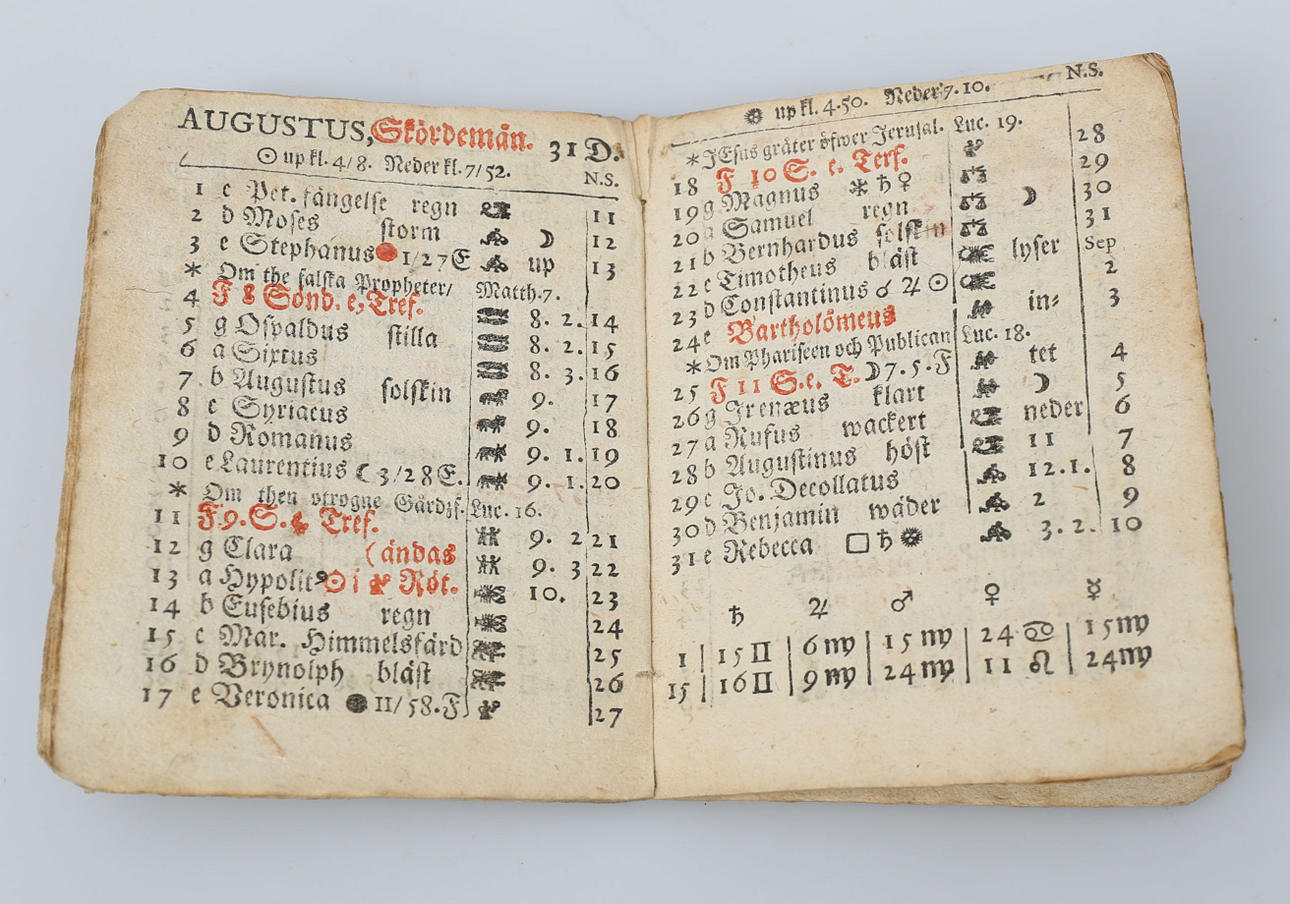 AUGUSTUS, Skördemån. 31 D.
☉ up kl. 4/8. Neder kl. 7/52. N.S.
1 c Pet. fängelse regn 11
2 d Moses storm ☽ 12
3 e Stephanus 1/27 E up 13
* Om the falska Propheter/ Matth. 7.
4 F 8 Sönd. e. Tref. 8. 2. 14
5 g Osvaldus stilla 8. 2. 15
6 a Sixtus 8. 3. 16
7 b Augustus solskin 9. 17
8 c Syriacus 9. 18
9 d Romanus 9. 1. 19
10 e Laurentius ☾ 3/28 E. 9. 1. 20
* Om then otrogne Gårdzf. Luc. 16.
11 F 9. S. e. Tref. 9. 2 21
12 g Clara (ändas 9. 3 22
13 a Hypolit9 ☉ i Röt. 10. 23
14 b Eusebius regn 24
15 c Mar. Himmelsfärd 25
16 d Brynolph bläst 26
17 e Veronica 11/58. F 27
up kl. 4.50. Neder 7.10. N.S.
* JEsus gråter öfwer Jerusal. Luc. 19.
18 F 10 S. e. Tref. 28
19 g Magnus ♄ ♀ 29
20 a Samuel regn ☽ 30
21 b Bernhardus solskin 31
22 c Timotheus bläst lyser Sep
23 d Constantinus ☌ ♃ ☉ 2
24 e Bartholömeus in= 3
* Om Phariseen och Publican Luc. 18.
25 F 11 S. e. T. ☽ 7. 5. F tet 4
26 g Irenæus klart ☽ 5
27 a Rufus wackert neder 6
28 b Augustinus höst 11 7
29 c Jo. Decollatus 12. 1. 8
30 d Benjamin wäder 2 9
31 e Rebecca □ ♄ 3. 2. 10
♄ ♃ ♂ ♀ ☿
1 15 ♊ 6 ♍ 15 ♍ 24 ♋ 15 ♍
15 16 ♊ 9 ♍ 24 ♍ 11 ♌ 24 ♍